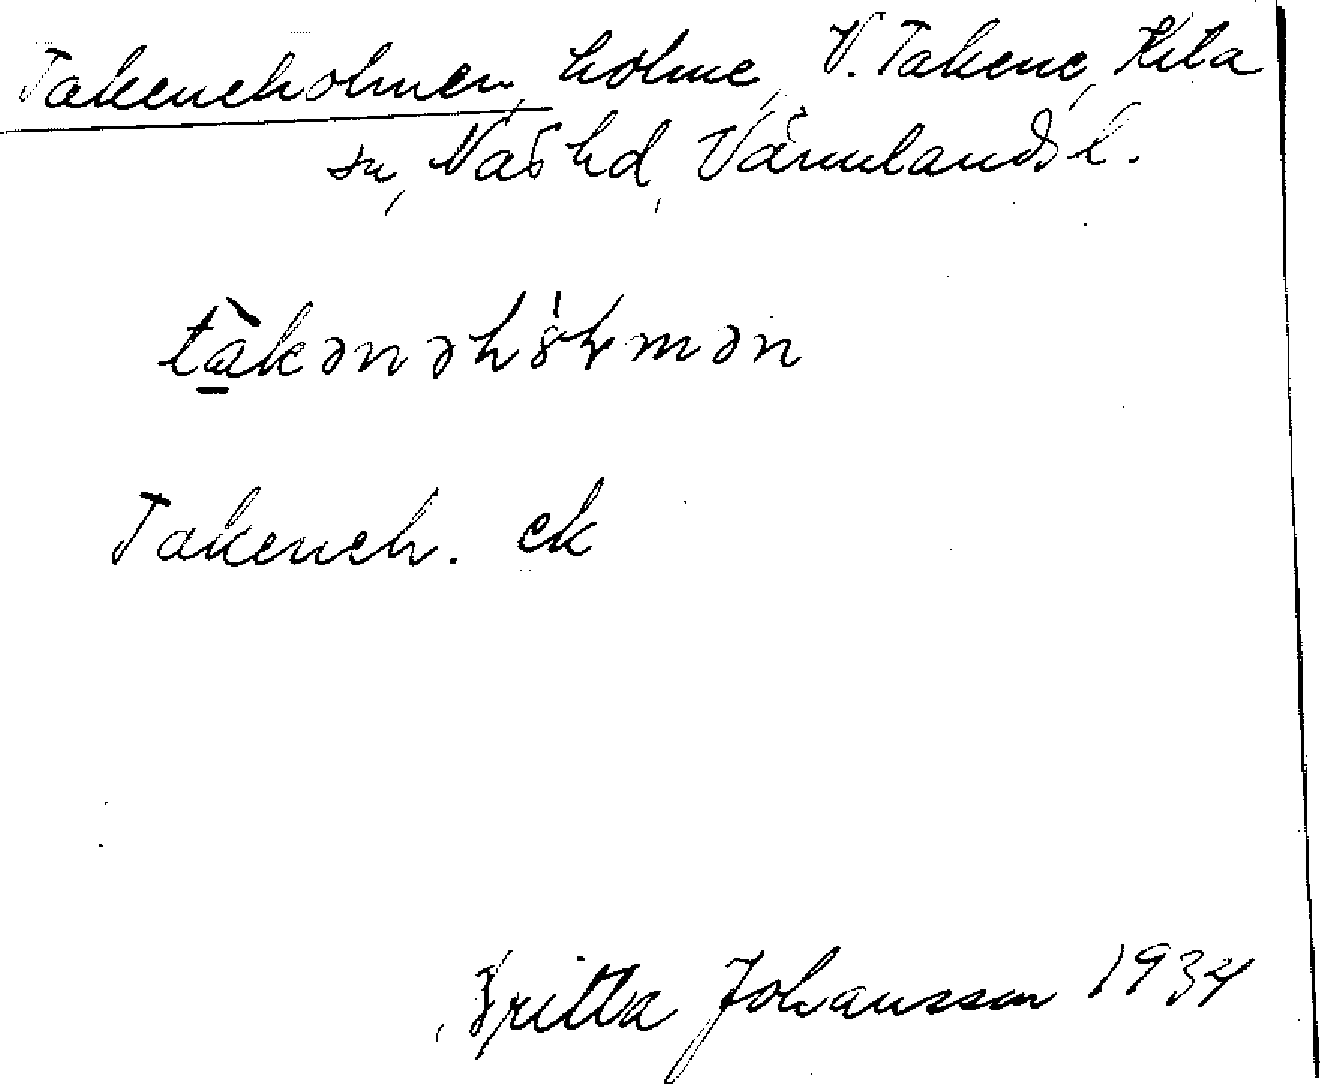 Takeneholmen, holme, V. Takene, Kila
sn, Näs hd, Värmlands l.
tàkənəhòɫmən
Takeneh. ek
Britta Johansson 1934